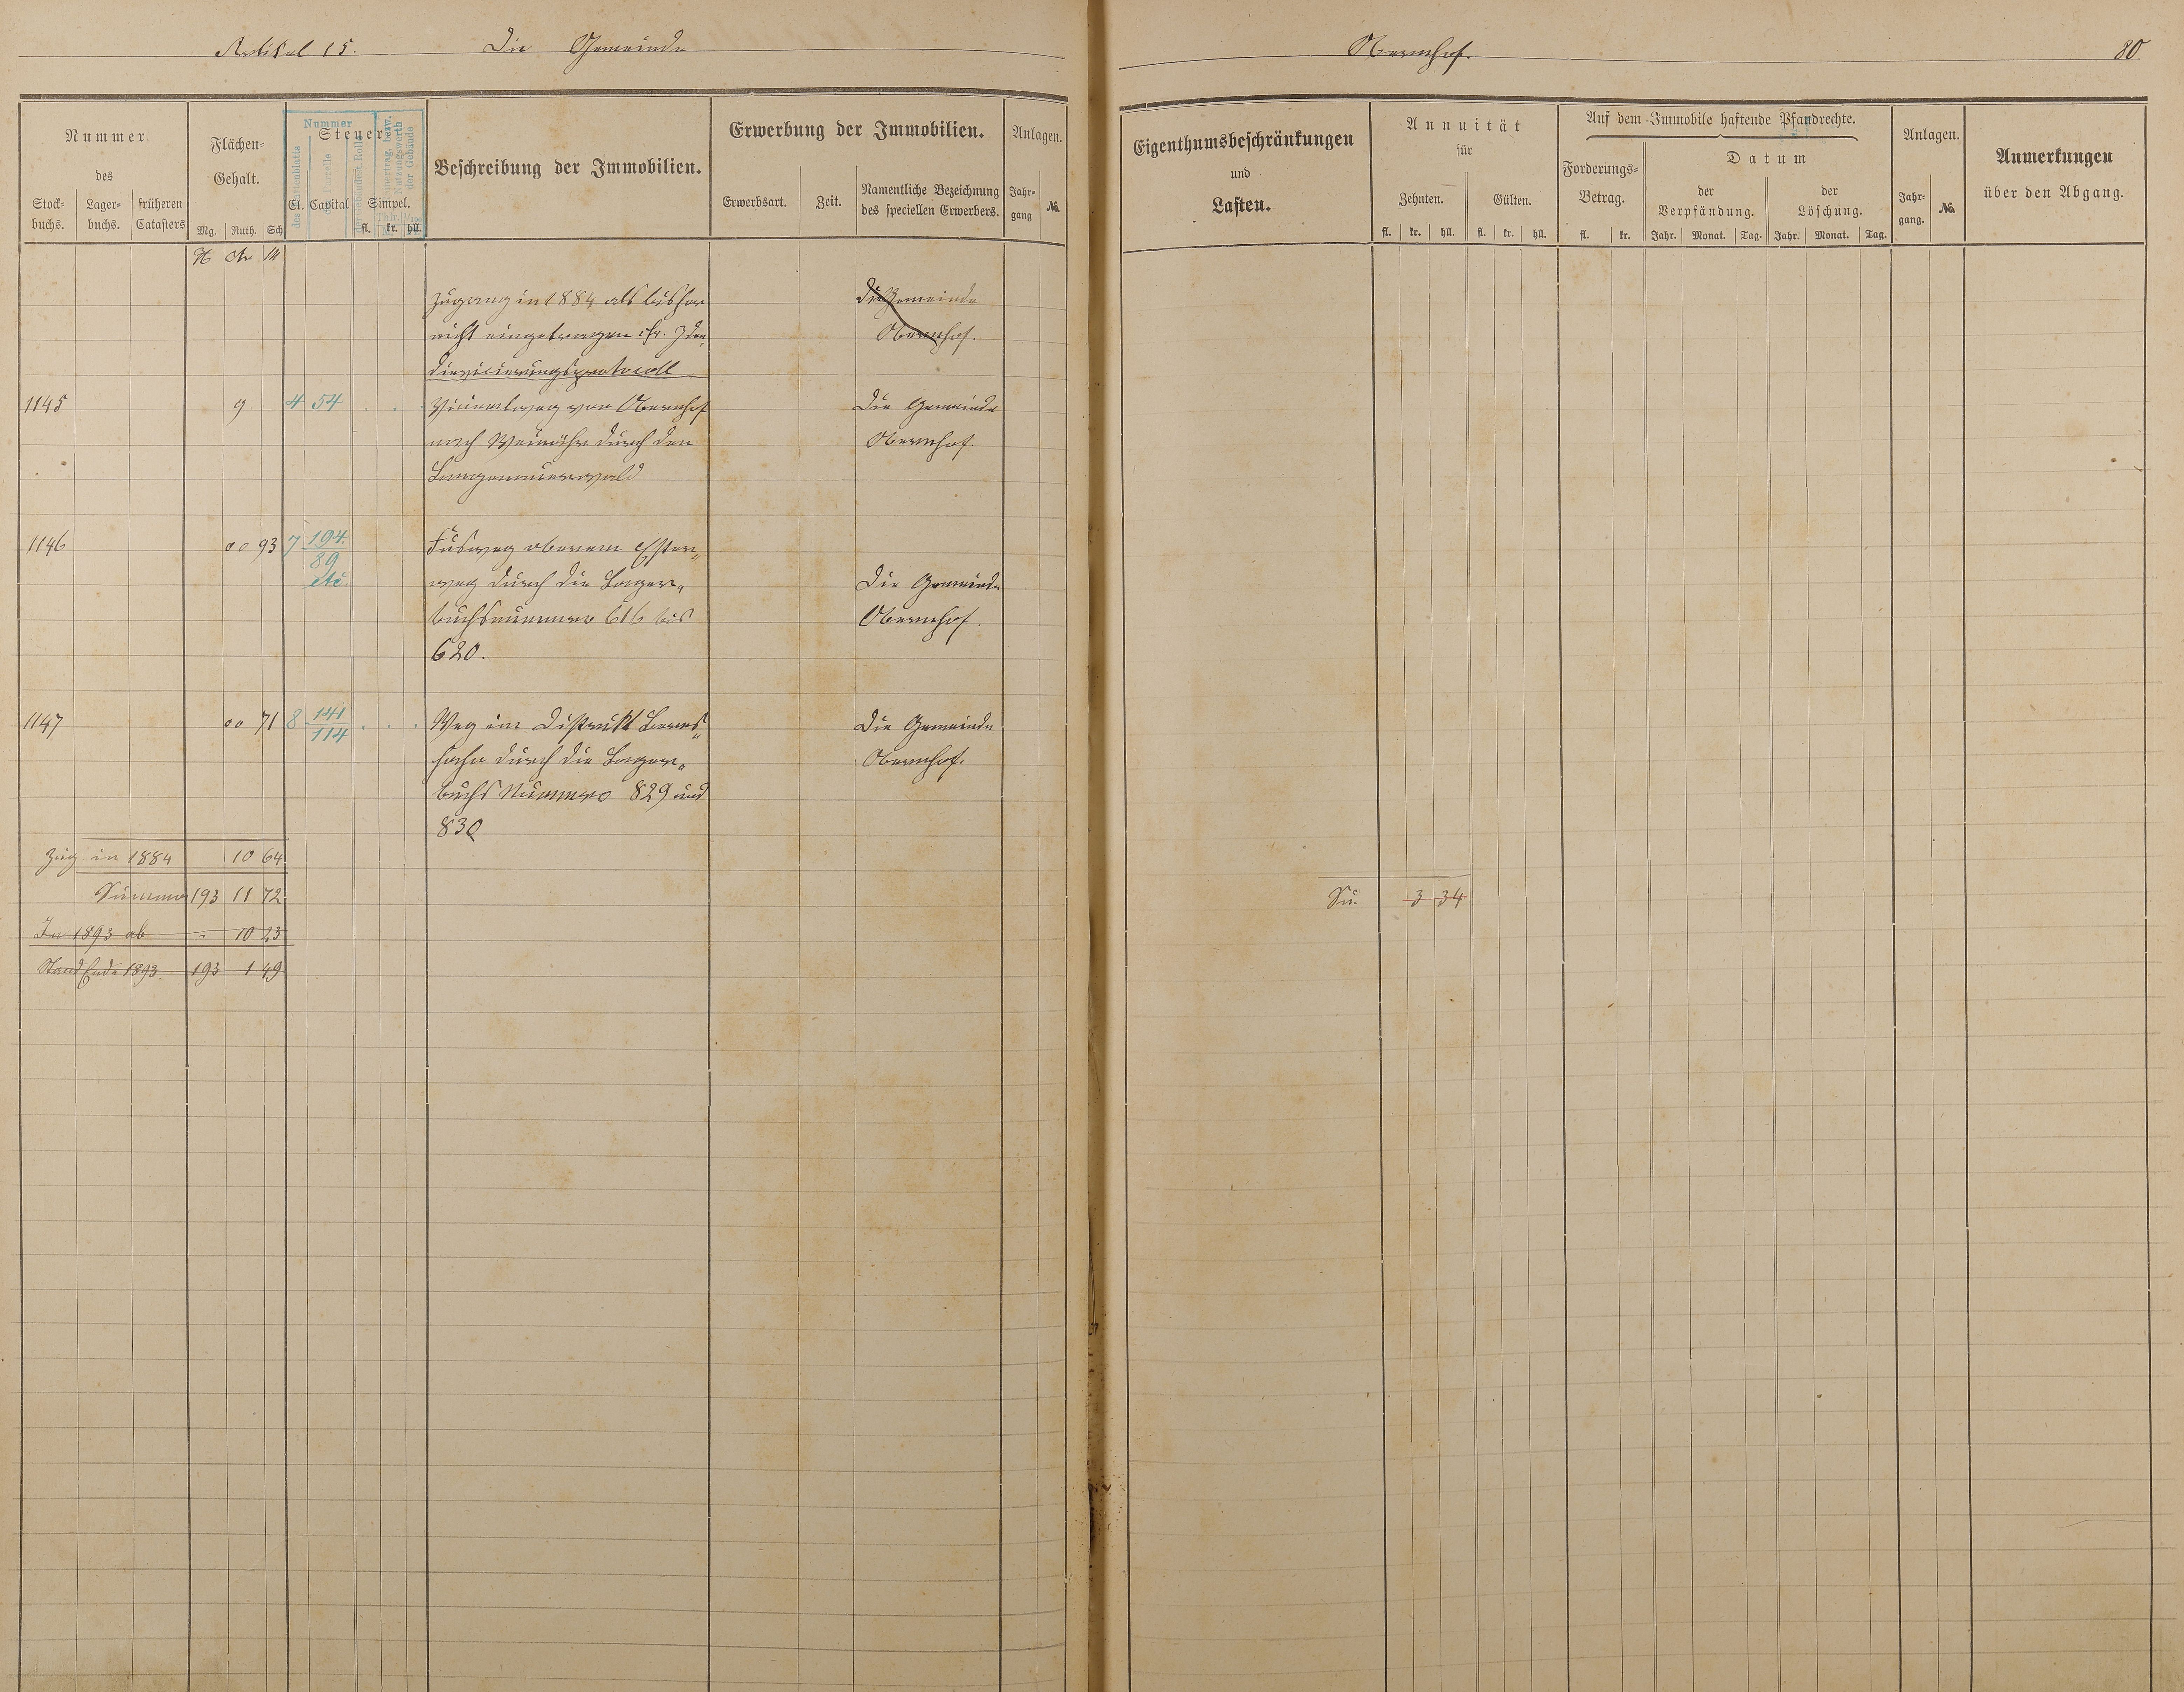 Artikel 15. Die Gemeinde
Obernhof. 80
Nummer
des
Stock-
buchs.
Lager-
buchs.
früheren
Catasters
Flächen-
Gehalt.
Mg. Ruth. Sch
Steuer
Cl. Capital Simpel.
fl. kr. hll.
Nummer
des Kartenblatts
der Parzelle
Beschreibung der Immobilien.
Erwerbung der Immobilien.
Erwerbsart. Zeit.
Namentliche Bezeichnung
des speciellen Erwerbers.
Anlagen.
Jahr-
gang
No.
Eigenthumsbeschränkungen
und
Lasten.
Annuität
für
Zehnten. Gülten.
fl. kr. hll. fl. kr. hll.
Auf dem Immobile haftende Pfandrechte.
Forderungs-
Betrag.
fl. kr.
Datum
der
Verpfändung.
der
Löschung.
Jahr. Monat. Tag. Jahr. Monat. Tag.
Anlagen.
Jahr-
gang.
No.
Anmerkungen
über den Abgang.
Zugang in 1884 als bisher Die Gemeinde
nicht eingetragen cfr. Iden- Obernhof.
1145 9 4 54 Vicinalweg von Obernhof Die Gemeinde
nach Weinähr durch den Obernhof.
Langenauerwald
1146 00 93 7 194 Fusweg oberem
89
etc. weg durch die Lager- Die Gemeinde
buchsnummer 616 bis Obernhof.
620.
1147 00 71 8 141 Weg im Distrikt Die Gemeinde
114
hahn durch die Lager- Obernhof.
buchs Nummero 829 und
830
Zug. in 1884 10 64
Summa 193 11 72
Su. 3 34
In 1893 ab - 10 23
Stand Ende 1893. 193 1 49